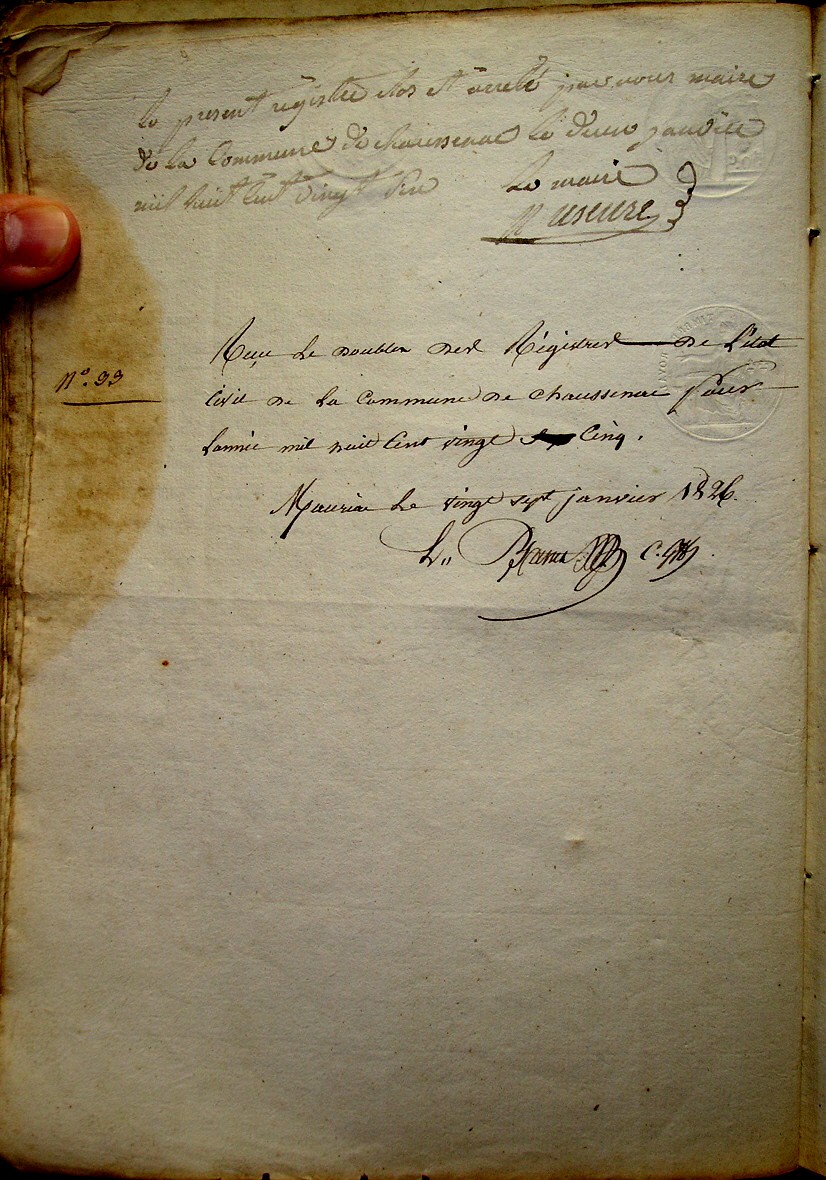 le present régistre clos et arreté par nous maire
de la Commune de chaussenac le deux janvier
mil huit Cent vingt Six le maire
N° 33
Reçu le double des Régistres de l'état
Civil de la Commune de Chaussenac pour
l'année mil huit Cent vingt Cinq.
Mauriac le vingt sept janvier 1826.